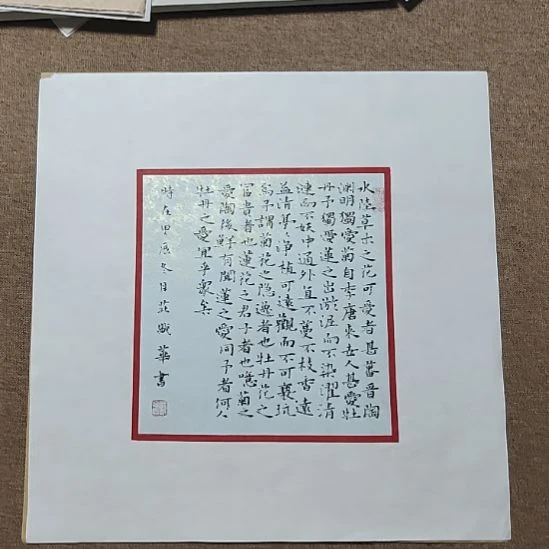 水陸草木之花可愛者甚蕃晉陶
渊明獨愛菊自李唐來世人甚愛牡
丹予獨愛蓮之出淤泥而不染濯清
漣而不妖中通外直不蔓不枝香遠
益清亭亭净植可遠觀而不可褻玩
焉予謂菊花之隐逸者也牡丹花之
富貴者也蓮花之君子者也噫菊之
愛陶後鮮有聞蓮之愛同予者何人
牡丹之愛宜乎衆矣
時在甲辰冬月莊 華書